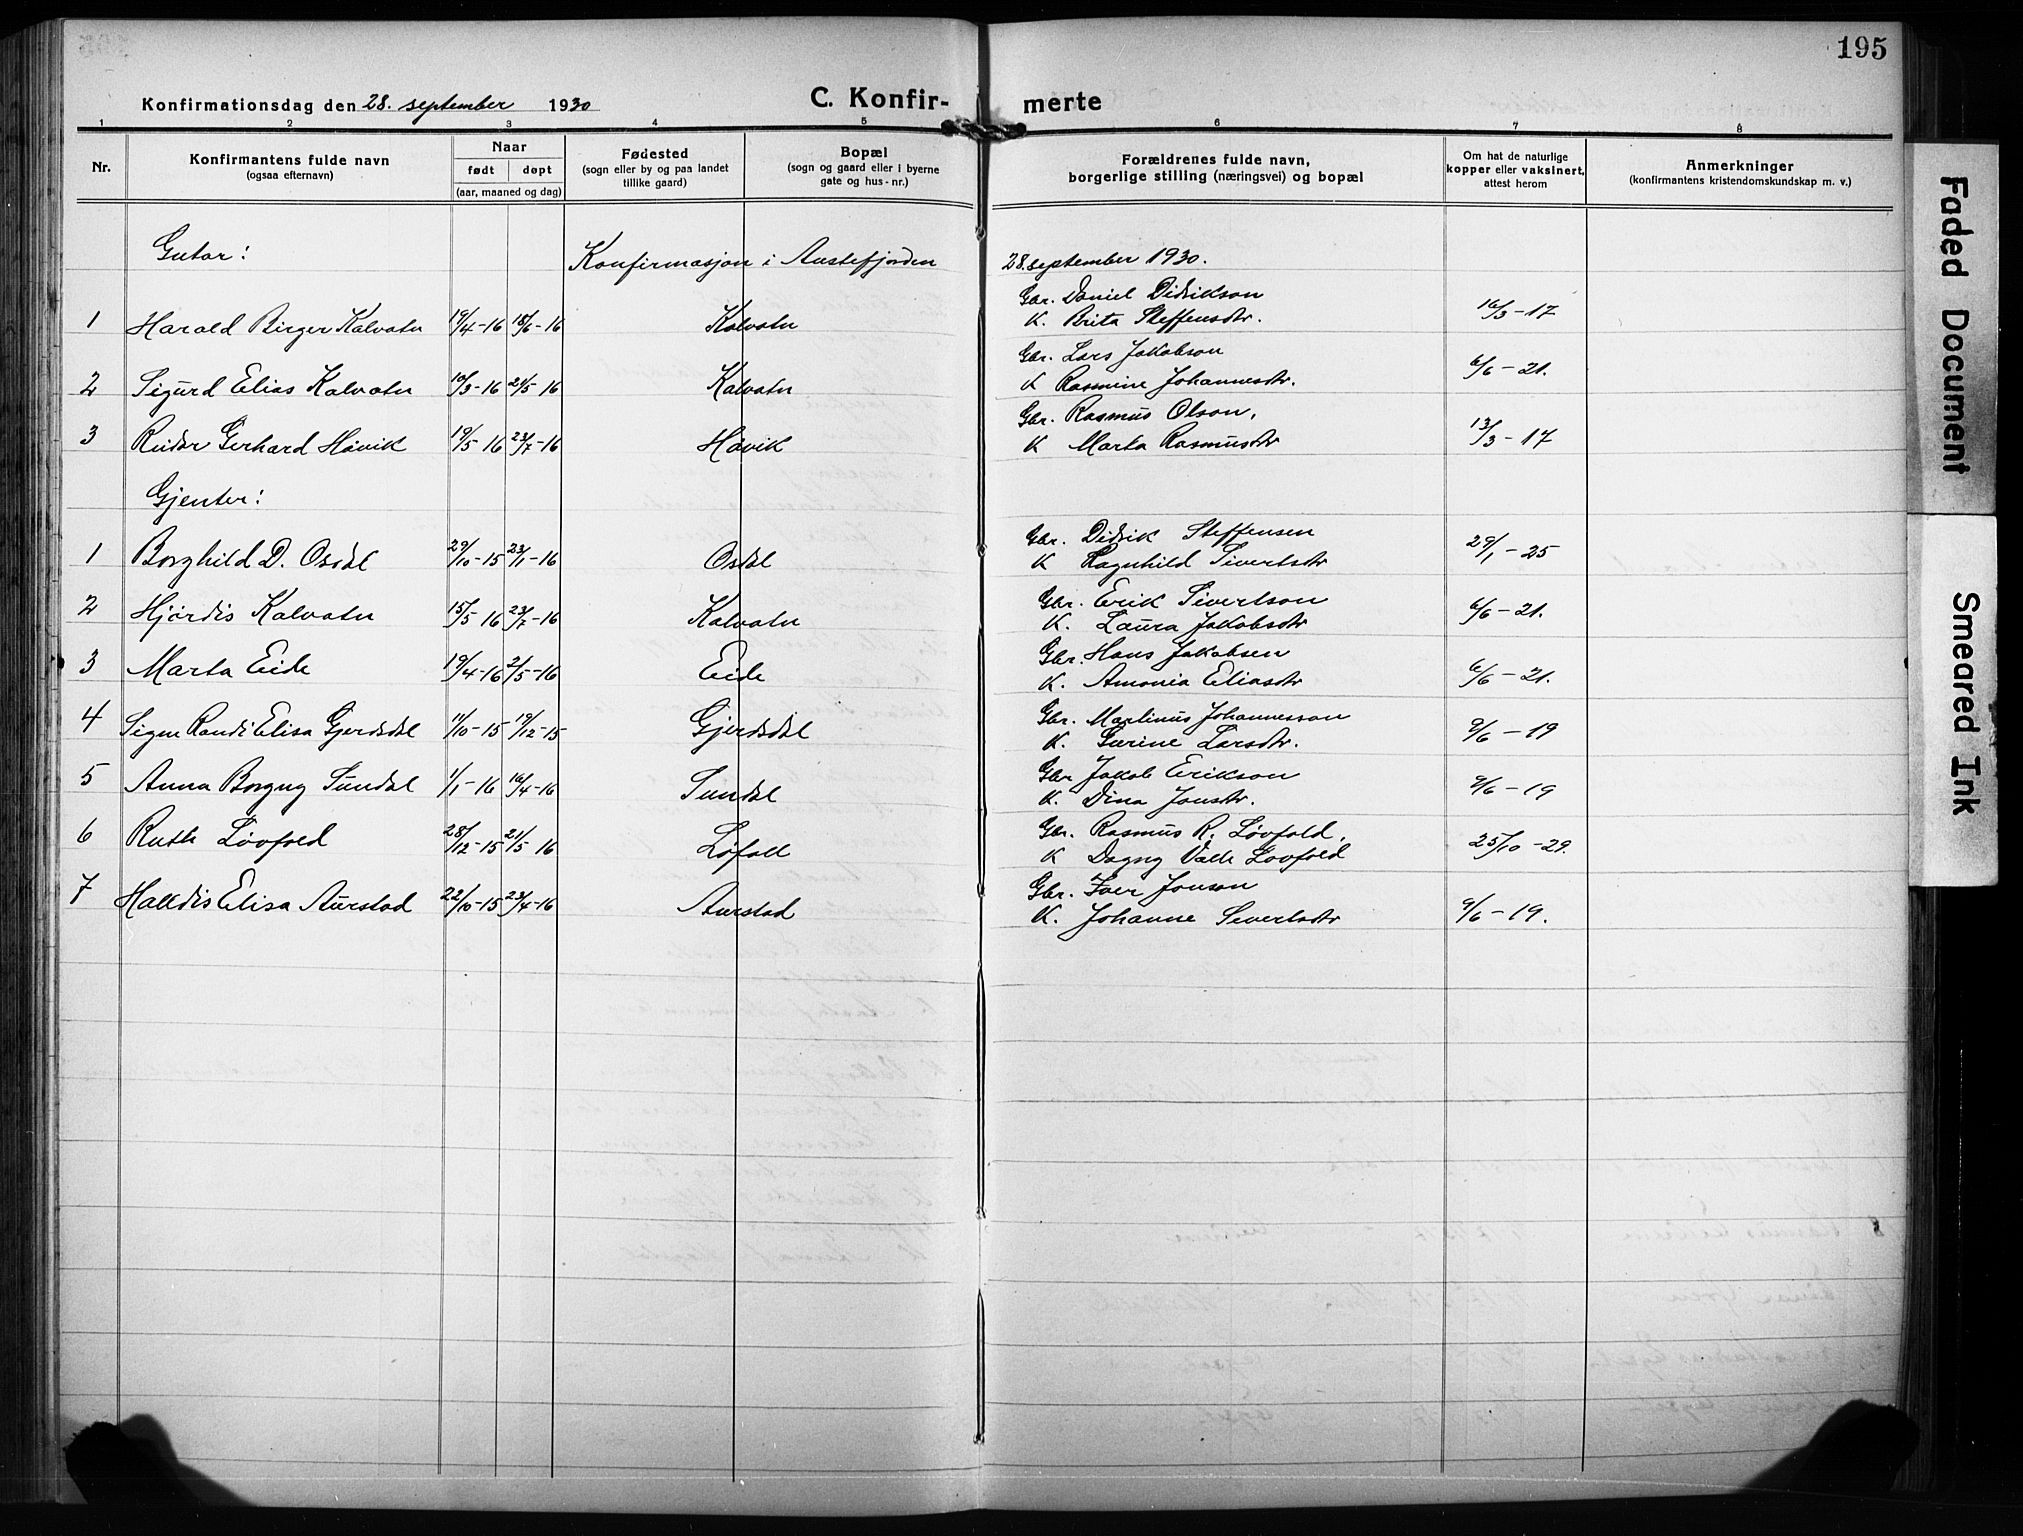 195
Konfirmationsdag den 28. september 1930
C. Konfir-
merte
1 2 3 4 5 6 7 8
Nr.
Konfirmantens fulde navn
(ogsaa efternavn)
Naar
født døpt
(aar, maaned og dag)
Fødested
(sogn eller by og paa landet
tillike gaard)
Bopæl
(sogn og gaard eller i byerne
gate og hus-nr.)
Forældrenes fulde navn,
borgerlige stilling (næringsvei) og bopæl
Om hat de naturlige
kopper eller vaksinert,
attest herom
Anmerkninger
(konfirmantens kristendomskundskap m. v.)
Gutar:
Konfirmasjon i Austefjorden 28. september 1930.
1 Harald Birger Kalvatn 19/4-16 18/6-16 Kalvatn Gbr. Daniel Didrikson 16/3-17
K. Brita Steffensdtr.
2 Sigurd Elias Kalvatn 10/3-16 21/5-16 Kalvatn Gbr. Lars Jakobson 6/6-21.
K Rasmine Johannesdtr.
3 Reidar Gerhard Høvik 19/5-16 23/7-16 Høvik Gbr. Rasmus Olson, 13/3-17
K Marta Rasmusdtr
Gjenter:
1 Borghild D. Osdal 29/10-15 23/1-16 Osdal Gbr. Didrik Steffensen 29/1-25
K Ragnhild Sivertsdtr
2 Hjørdis Kalvatn 15/5-16 23/7-16 Kalvatn Gbr. Erik Sivertson 6/6-21.
K. Laura Jakobsdtr
3 Marta Eide 19/4-16 21/5-16 Eide Gbr. Hans Jakobsen 6/6-21.
K. Amonia Eliasdtr
4 Signe Randi Elisa Gjerdsdal 11/10-15 19/12-15 Gjerdsdal Gbr. Martinus Johannesson 9/6-19
K. Severine Larsdtr.
5 Anna Borgny Sundal 1/1-16 16/4-16 Sundal Gbr Jakob Erikson 9/6-19
K. Dina Jonsdtr.
6 Ruth Løvfold 28/12-15 21/5 16 Løfoll Gbr. Rasmus R. Løvfold, 25/10-29.
K Dagny Valle Løvfold
7 Halldis Elisa Aurstad 22/10-15 23/4-16 Aurstad Gbr. Iver Jonson 9/6-19.
K. Johanne Sivertsdtr
Faded Document
Smeared Ink